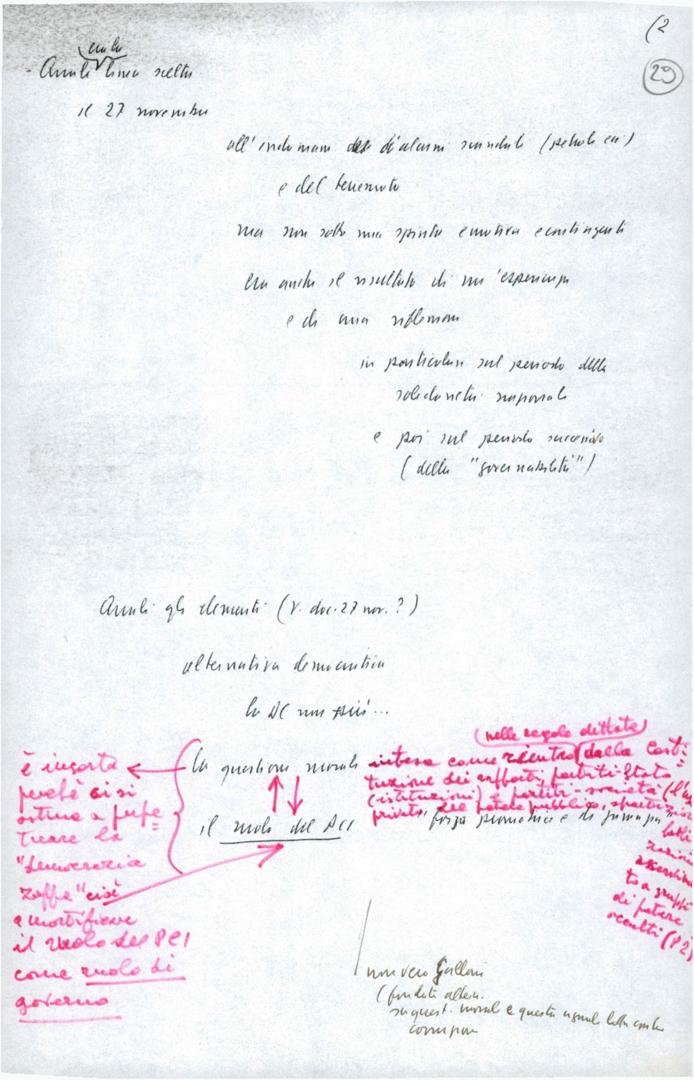 (2
29
- Quale linea scelta
il 27 novembre
all'indomani di alcuni scandali (petrolio ecc.)
e del terremoto
ma non sotto una spinta emotiva e contingente
ma anche il risultato di un'esperienza
e di una riflessione
in particolare sul periodo della
solidarietà nazionale
e poi sul periodo successivo
(della "governabilità")
Quali gli elementi (V. doc. 27 nov.?)
alternativa democratica
la DC non più...
la questione morale
il ruolo del PCI "forza promotrice e di
(nelle regole dettate)
intesa come rientro dalla Costi=
tuzione dei rapporti partiti-Stato
(istituzioni) e partiti-società
privato del potere pubblico,
a gruppi
di potere
occulti (P2)
è insorta
perché ci si
ostina a perpe=
tuare la
"democrazia
zoppa" cioè
a mortificare
il ruolo del PCI
come ruolo di
governo
non vero Galloni
su quest. morale e questa uguale lotta contro
corruzione